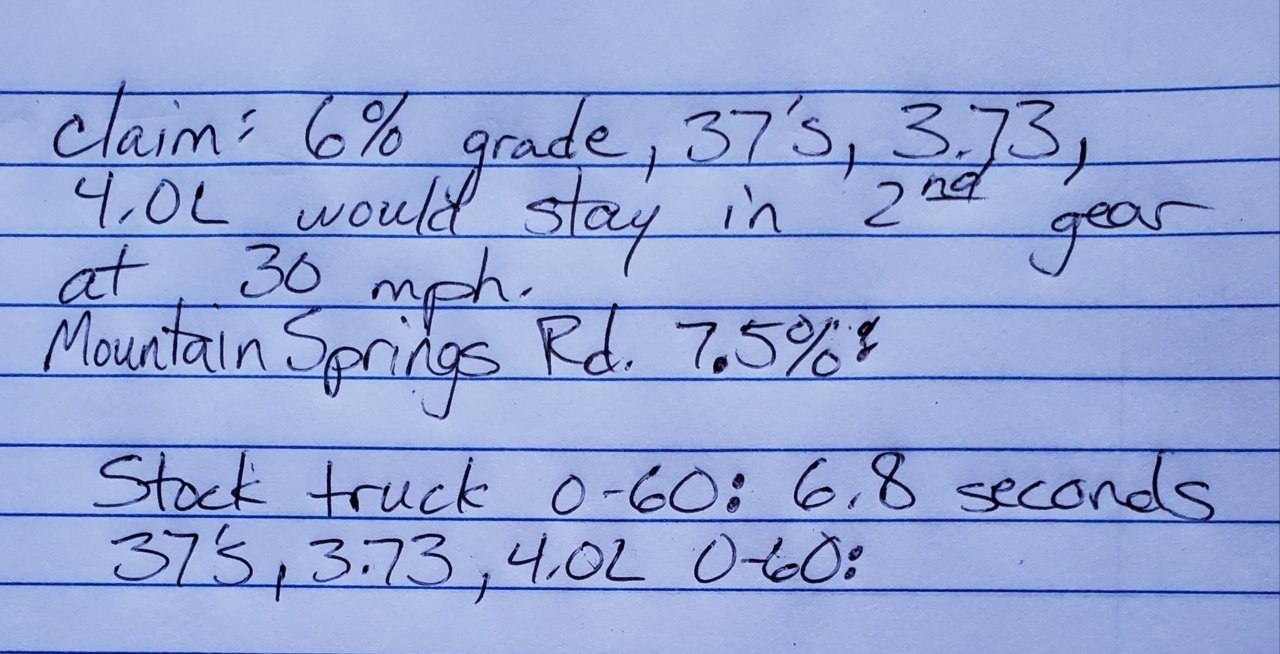 claim: 6% grade, 37's, 3.73,
4.0L would stay in 2nd gear
at 30 mph.
Mountain Springs Rd. 7.5%:
Stock truck 0-60: 6.8 seconds
37's, 3.73, 4.0L 0-60: